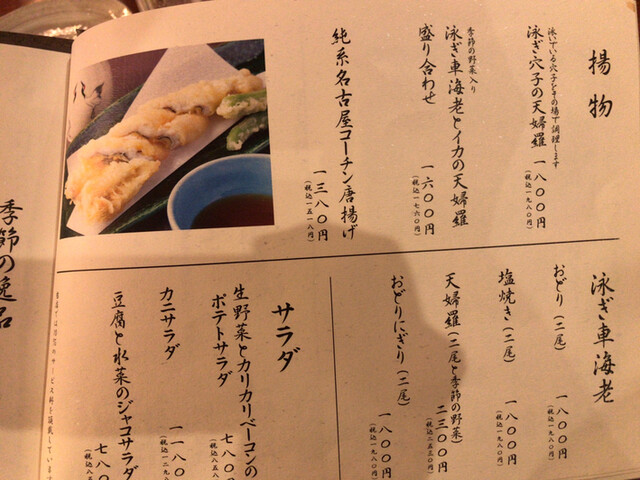 揚物
泳いでいる穴子をその場で調理します
泳ぎ穴子の天婦羅 一八〇〇円
(税込一九八〇円)
季節の野菜入り
泳ぎ車海老とイカの天婦羅
盛り合わせ 一六〇〇円
(税込一七六〇円)
純系名古屋コーチン唐揚げ
一三八〇円
(税込一五一八円)
泳ぎ車海老
おどり(二尾) 一八〇〇円
(税込一九八〇円)
塩焼き(二尾) 一八〇〇円
(税込一九八〇円)
天婦羅(二尾と季節の野菜)
二三〇〇円
(税込二五三〇円)
おどりにぎり(二尾)
一八〇〇円
(税込一九八〇円)
サラダ
生野菜とカリカリベーコンの
ポテサラダ 七八〇
(税込八五
カニサラダ 一一八〇
(税込一二九
豆腐と水菜のジャコサラダ
七八
(税込八
季節の逸品